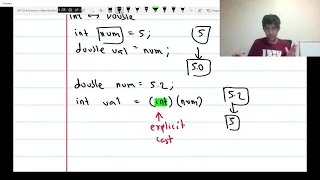 int ↔ Double
int num = 5;
double val = num;
5
5.0
double num = 5.2;
int val = (int)(num)
5.2
5
explicit
cast